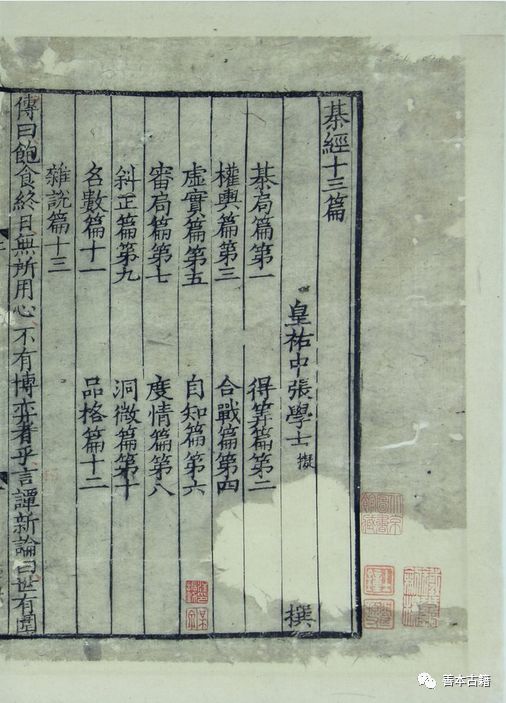 棊經十三篇
皇祐中張學士擬撰
棊局篇第一 得筭篇第二
權輿篇第三 合戰篇第四
虛實篇第五 自知篇第六
審局篇第七 度情篇第八
斜正篇第九 洞微篇第十
名數篇十一 品格篇十二
雜說篇十三
傳曰飽食終日無所用心不有博弈者乎言譚新論曰世有圍
善本古籍